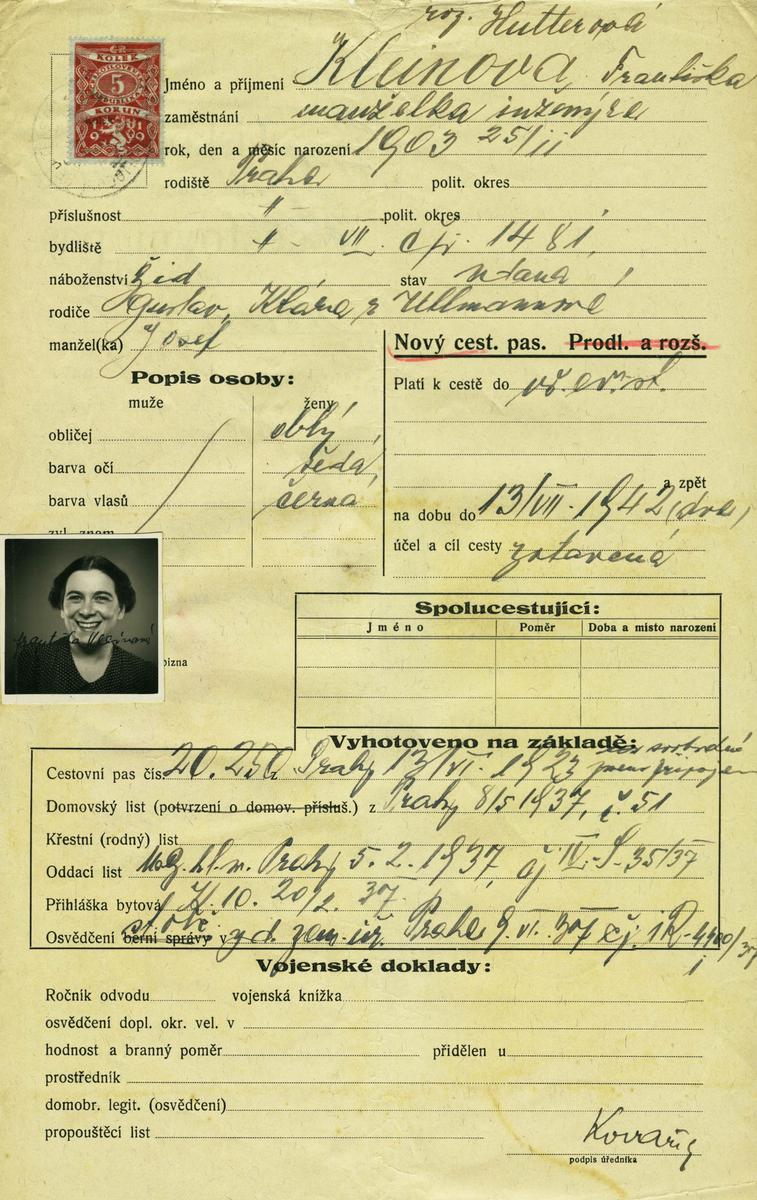 roz. Hutterová
KOLEK
5
KORUN
Jméno a příjmení Kleinová, Františka
zaměstnání manželka inženýra
rok, den a měsíc narození 1903 25/II
rodiště Praha polit. okres
příslušnost " polit. okres
bydliště " - VII. čp. 1481,
náboženství žid stav vdaná,
rodiče Gustav, Klára r. Ullmannová
manžel(ka) Josef
Nový cest. pas. Prodl. a rozš.
Popis osoby:
muže ženy
Platí k cestě do vš. ev. st.
obličej oblý,
barva očí šedá,
barva vlasů černá
zvl. znam.
a zpět
na dobu do 13/VII - 1942 (dva)
účel a cíl cesty zotavená
Františka Kleinová
pizna
Spolucestující:
Jméno Poměr Doba a místo narození
Vyhotoveno na základě:
Cestovní pas čís. 20.250 Prahy 13/VI. 1923
Domovský list (potvrzení o domov. přísluš.) z Prahy 8/5 1937, č. 51
Křestní (rodný) list
Oddací list Mag. hl. m. Prahy 5. 2. 1937, čj IV.-S-35/37
Přihláška bytová K. 10. 20/2. 37.
Osvědčení st. obč. berní správy v zem. úř. Praha 9. VI. 37 čj.
Vojenské doklady:
Ročník odvodu vojenská knížka
osvědčení dopl. okr. vel. v
hodnost a branný poměr přidělen u
prostředník
domobr. legit. (osvědčení)
propouštěcí list
Kovařík
podpis úředníka